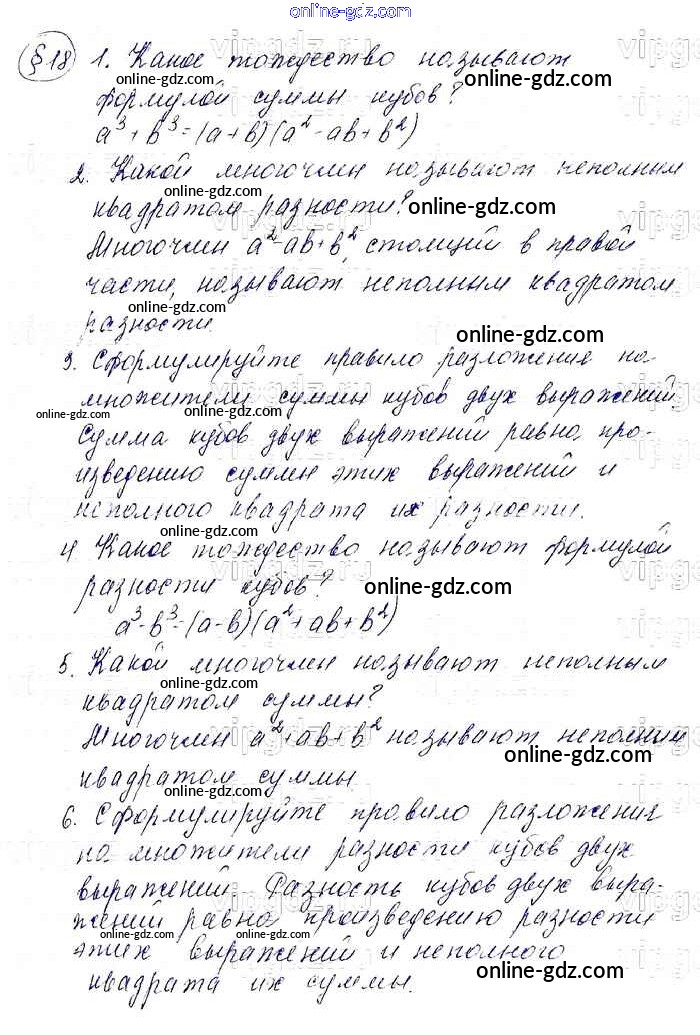 online-gdz.com
§18 1. Какое тождество называют
online-gdz.com
формулой суммы кубов?
a³+b³=(a+b)(a²-ab+b²)
online-gdz.com
2. Какой многочлен называют неполным
online-gdz.com
квадратом разности? online-gdz.com
Многочлен a²-ab+b², стоящий в правой
части, называют неполным квадратом
online-gdz.com
разности.
online-gdz.com
3. Сформулируйте правило разложения на
множители суммы кубов двух выражений.
online-gdz.com online-gdz.com
Сумма кубов двух выражений равна про-
изведению суммы этих выражений и
неполного квадрата их разности.
online-gdz.com
4. Какое тождество называют формулой
разности кубов? online-gdz.com
a³-b³=(a-b)(a²+ab+b²)
5. Какой многочлен называют неполным
online-gdz.com
квадратом суммы?
Многочлен a²+ab+b² называют неполным
online-gdz.com
квадратом суммы.
6. Сформулируйте правило разложения
на множители разности кубов двух
online-gdz.com
выражений. Разность кубов двух выра-
жений равна произведению разности
online-gdz.com online-gdz.com
этих выражений и неполного
online-gdz.com
квадрата их суммы.